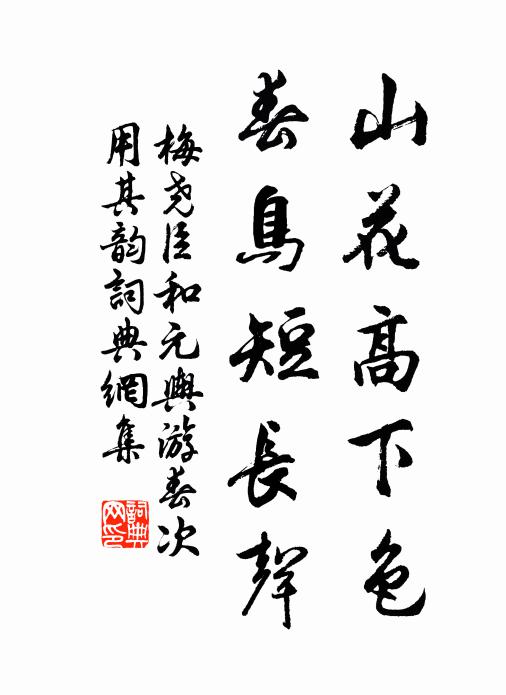 山花高下色
春鳥短長聲
梅尧臣和元輿游春次
用其韵詞典網集
詞典网印